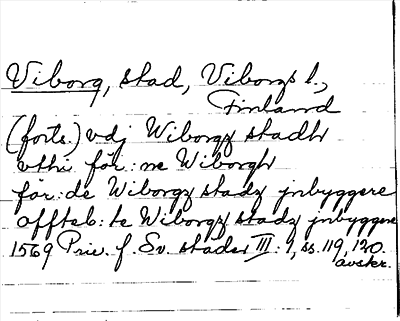 Viborg, stad, Viborgs l.,
Finland
(forts.) vdj Wiborgz stadh
vthi för:ne Wiborgh
för:de Wiborgz stadz jnbyggere
offteb:te Wiborgz stadz jnbyggere
1569 Priv. f. Sv. städer III:1, ss. 119, 120.
avskr.